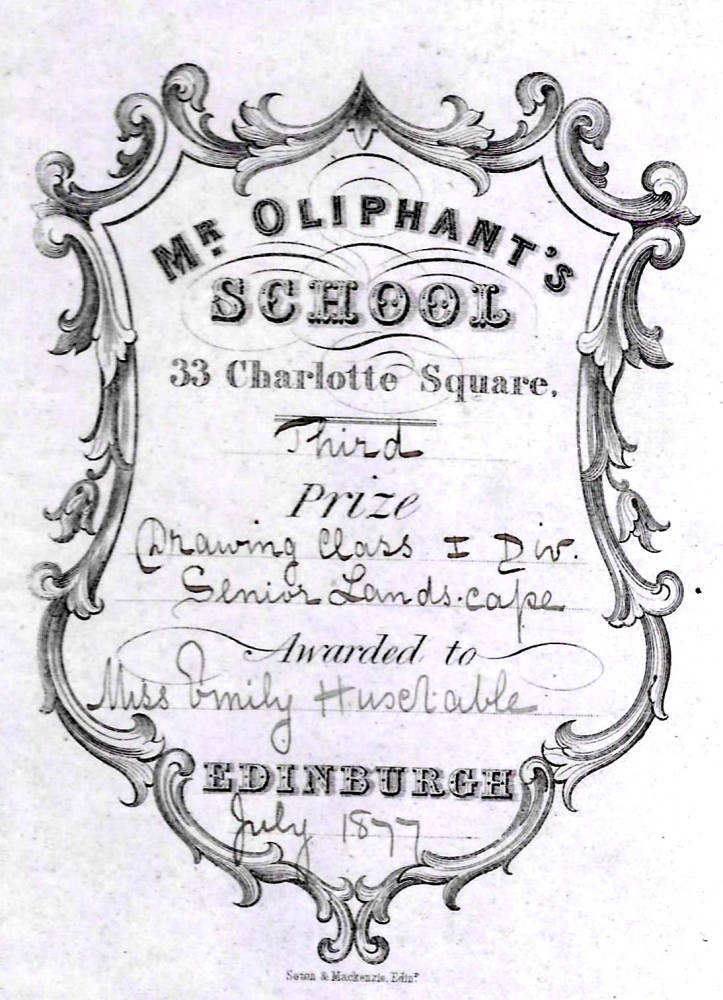 Mr. OLIPHANT'S
SCHOOL
33 Charlotte Square,
Third
Prize
Drawing Class I Div.
Senior Landscape
Awarded to
Miss Emily
EDINBURGH
July 1877
Seton & Mackenzie, Edinr.